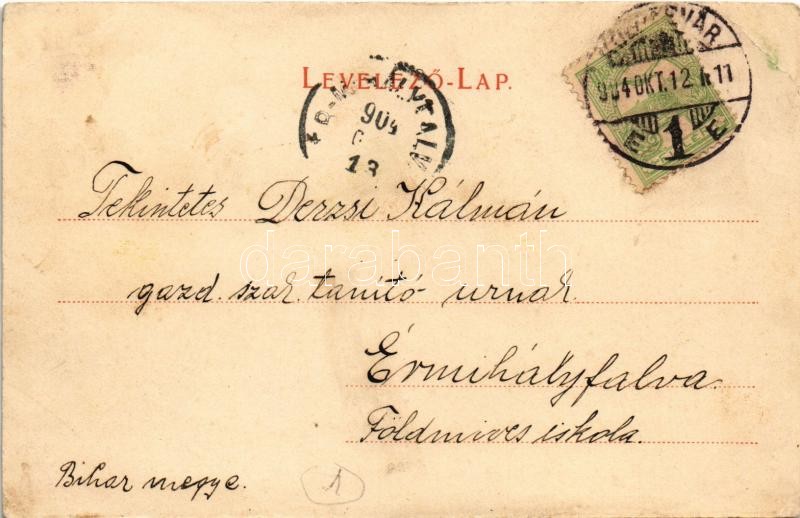 LEVELEZŐ-LAP.
904 OKT. 12
1
904
13
Tekintetes Derzsi Kálmán
darabanth
gazd. szak. tanító urnak
Érmihályfalva.
Földmives iskola.
Bihar megye.
1